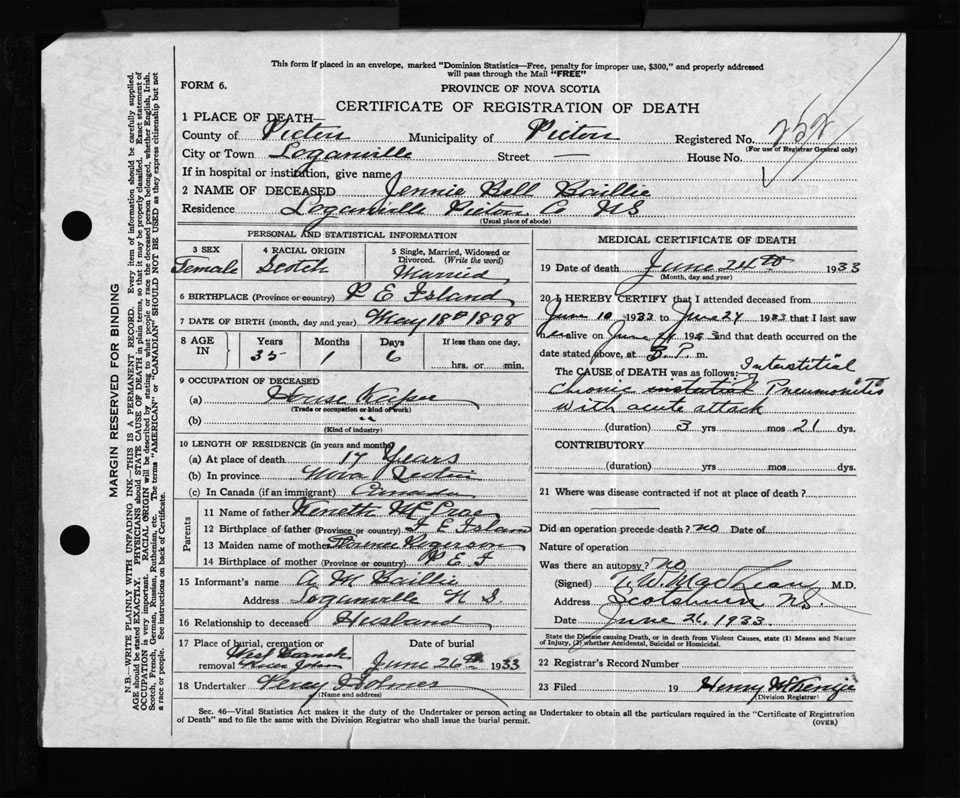 This form if placed in an envelope, marked "Dominion Statistics—Free, penalty for improper use, $300," and properly addressed
will pass through the Mail "FREE"
FORM 6.
PROVINCE OF NOVA SCOTIA
CERTIFICATE OF REGISTRATION OF DEATH
1 PLACE OF DEATH—
County of Pictou Municipality of Pictou Registered No. 258
(For use of Registrar General only)
City or Town Loganville Street — House No.
If in hospital or institution, give name
2 NAME OF DECEASED Jennie Bell Baillie
Residence Loganville Pictou Co NS
(Usual place of abode)
PERSONAL AND STATISTICAL INFORMATION
3 SEX Female
4 RACIAL ORIGIN Scotch
5 Single, Married, Widowed or Divorced. (Write the word) Married
6 BIRTHPLACE (Province or country) P E Island
7 DATE OF BIRTH (month, day and year) May 18th 1898
8 AGE IN Years 35 Months 1 Days 6 If less than one day, hrs. or min.
9 OCCUPATION OF DECEASED
(a) House Keeper
(Trade or occupation or kind of work)
(b) " "
(Kind of industry)
10 LENGTH OF RESIDENCE (in years and months)
(a) At place of death 17 Years
(b) In province Nova Scotia
(c) In Canada (if an immigrant) Canada
Parents
11 Name of father Kenneth McCrae
12 Birthplace of father (Province or country) P E Island
13 Maiden name of mother Rogerson
14 Birthplace of mother (Province or country) P E I
15 Informant's name A M Baillie
Address Loganville N S
16 Relationship to deceased Husband
17 Place of burial, cremation or removal West Branch River John
Date of burial June 26th 1933
18 Undertaker Percy Holmes
(Name and address)
MEDICAL CERTIFICATE OF DEATH
19 Date of death June 24th 1933
(Month, day and year)
20 I HEREBY CERTIFY that I attended deceased from
June 10 1933 to June 24 1933 that I last saw
her alive on June 24 1933 and that death occurred on the
date stated above, at 3 P. m.
The CAUSE of DEATH was as follows: Interstitial
Chronic Pneumonitis
with acute attack
(duration) 3 yrs mos 21 dys.
CONTRIBUTORY
(duration) yrs mos dys.
21 Where was disease contracted if not at place of death?
Did an operation precede death? no Date of
Nature of operation
Was there an autopsy? no
(Signed) W. MacLean M.D.
Address Scotsburn N.S.
Date June 26, 1933.
State the Disease causing Death, or in death from Violent Causes, state (1) Means and Nature
of Injury, (2) whether Accidental, Suicidal or Homicidal.
22 Registrar's Record Number
23 Filed 19 Henry McKenzie
(Division Registrar)
Sec. 46—Vital Statistics Act makes it the duty of the Undertaker or person acting as Undertaker to obtain all the particulars required in the "Certificate of Registration
of Death" and to file the same with the Division Registrar who shall issue the burial permit.
(OVER)
MARGIN RESERVED FOR BINDING
N.B.—WRITE PLAINLY WITH UNFADING INK—THIS IS A PERMANENT RECORD. Every item of information should be carefully supplied.
AGE should be stated EXACTLY. PHYSICIANS should STATE CAUSE OF DEATH in plain terms, so that it may be properly classified. Exact statement of
OCCUPATION is very important. RACIAL ORIGIN will be described by stating to what people or race the deceased person belonged, whether English, Irish,
Scotch, French, German, Russian, Ruthenian, etc. The terms "AMERICAN" or "CANADIAN" SHOULD NOT BE USED as they express citizenship but not
a race or people. See instructions on back of Certificate.